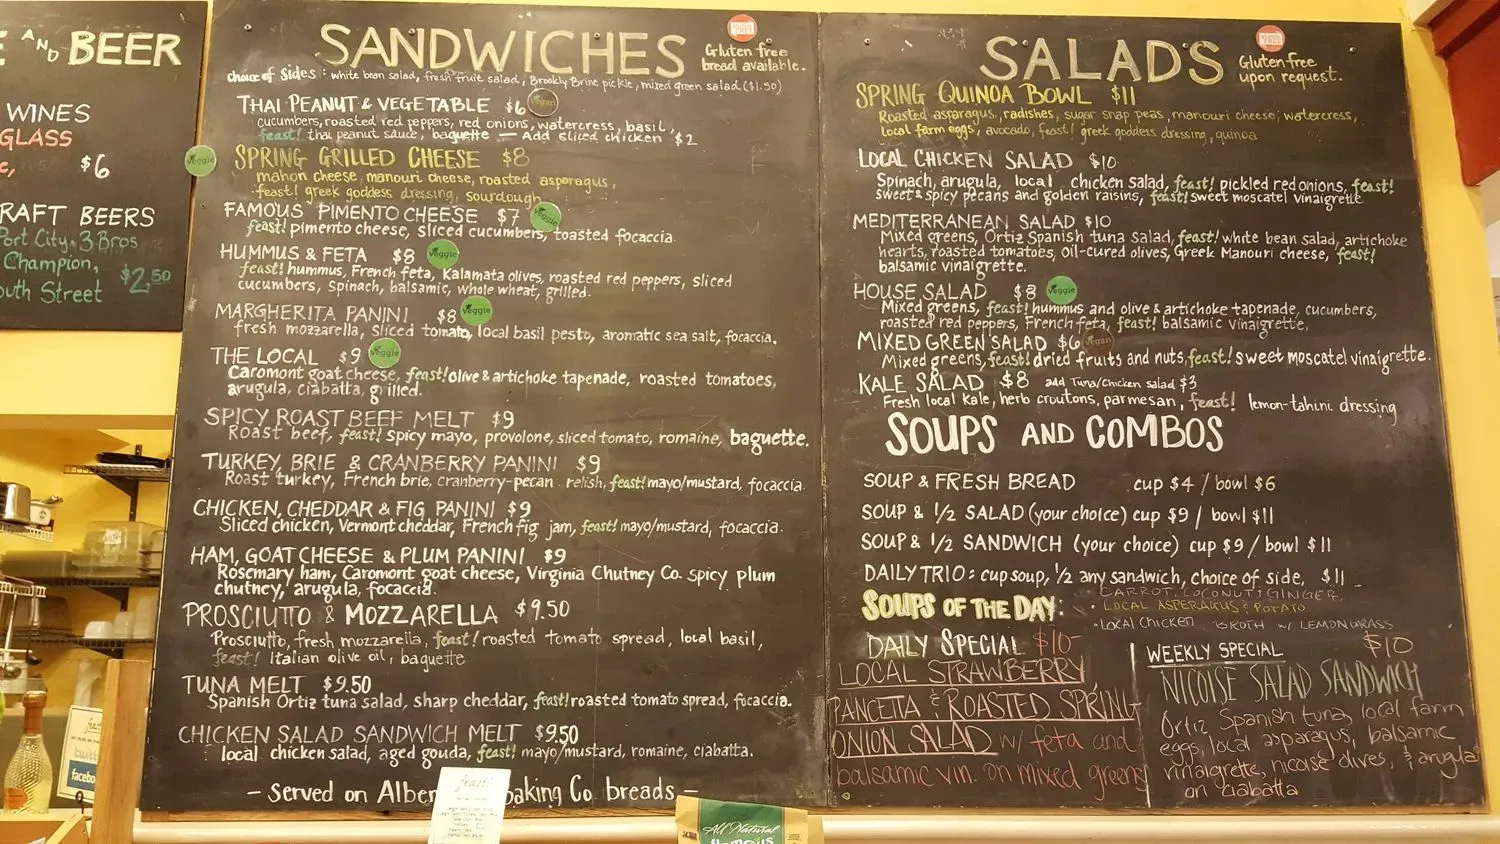 AND BEER
WINES
GLASS
$6
RAFT BEERS
Port City, 3 Bros
Champion,
outh Street
$2.50
SANDWICHES
Gluten free
bread available.
choice of Sides : white bean salad, fresh fruit salad, Brookly Brine pickle, mixed green salad ($1.50)
THAI PEANUT & VEGETABLE $6 Vegan
cucumbers, roasted red peppers, red onions, watercress, basil,
feast! thai peanut sauce, baguette — Add sliced chicken $2
Veggie SPRING GRILLED CHEESE $8
mahon cheese, manouri cheese, roasted asparagus,
feast! greek goddess dressing, sourdough
FAMOUS PIMENTO CHEESE $7 Veggie
feast! pimento cheese, sliced cucumbers, toasted focaccia.
HUMMUS & FETA $8 Veggie
feast! hummus, French feta, Kalamata olives, roasted red peppers, sliced
cucumbers, Spinach, balsamic, whole wheat, grilled.
MARGHERITA PANINI $8 Veggie
fresh mozzarella, sliced tomato, local basil pesto, aromatic sea salt, focaccia.
THE LOCAL $9 Veggie
Caromont goat cheese, feast! olive & artichoke tapenade, roasted tomatoes,
arugula, ciabatta, grilled.
SPICY ROAST BEEF MELT $9
Roast beef, feast! spicy mayo, provolone, sliced tomato, romaine, baguette.
TURKEY, BRIE & CRANBERRY PANINI $9
Roast turkey, French brie, cranberry-pecan relish, feast! mayo/mustard, focaccia.
CHICKEN, CHEDDAR & FIG PANINI $9
Sliced chicken, Vermont cheddar, French fig jam, feast! mayo/mustard, focaccia.
HAM, GOAT CHEESE & PLUM PANINI $9
Rosemary ham, Caromont goat cheese, Virginia Chutney Co. spicy plum
chutney, arugula, focaccia.
PROSCIUTTO & MOZZARELLA $9.50
Prosciutto, fresh mozzarella, feast! roasted tomato spread, local basil,
feast! Italian olive oil, baguette
TUNA MELT $9.50
Spanish Ortiz tuna salad, sharp cheddar, feast! roasted tomato spread, focaccia.
CHICKEN SALAD SANDWICH MELT $9.50
local chicken salad, aged gouda, feast! mayo/mustard, romaine, ciabatta.
– Served on Alber baking Co. breads –
SALADS
Gluten-free
upon request.
SPRING QUINOA BOWL $11
Roasted asparagus, radishes, sugar snap peas, manouri cheese, watercress,
local farm eggs, avocado, feast! greek goddess dressing, quinoa
LOCAL CHICKEN SALAD $10
Spinach, arugula, local chicken salad, feast! pickled red onions, feast!
sweet & spicy pecans and golden raisins, feast! sweet moscatel vinaigrette.
MEDITERRANEAN SALAD $10
Mixed greens, Ortiz Spanish tuna salad, feast! white bean salad, artichoke
hearts, roasted tomatoes, oil-cured olives, Greek Manouri cheese, feast!
balsamic vinaigrette.
HOUSE SALAD $8 Veggie
Mixed greens, feast! hummus and olive & artichoke tapenade, cucumbers,
roasted red peppers, French feta, feast! balsamic vinaigrette.
MIXED GREEN SALAD $6 Vegan
Mixed greens, feast! dried fruits and nuts, feast! sweet moscatel vinaigrette.
KALE SALAD $8 add Tuna/Chicken salad $3
Fresh local kale, herb croutons, parmesan, feast! lemon-tahini dressing
SOUPS AND COMBOS
SOUP & FRESH BREAD cup $4 / bowl $6
SOUP & 1/2 SALAD (your choice) cup $9 / bowl $11
SOUP & 1/2 SANDWICH (your choice) cup $9 / bowl $11
DAILY TRIO: cup soup, 1/2 any sandwich, choice of side, $11
SOUPS OF THE DAY:
• CARROT, COCONUT & GINGER
• LOCAL ASPARAGUS & POTATO
• LOCAL CHICKEN BROTH W/ LEMONGRASS
DAILY SPECIAL $10-
LOCAL STRAWBERRY
PANCETTA & ROASTED SPRING
ONION SALAD w/ feta and
balsamic vin. on mixed greens
WEEKLY SPECIAL $10
NICOISE SALAD SANDWICH
Ortiz Spanish tuna, local farm
eggs, local asparagus, balsamic
vinaigrette, nicoise olives, & arugula
on ciabatta
feast!
All Natural
facebo